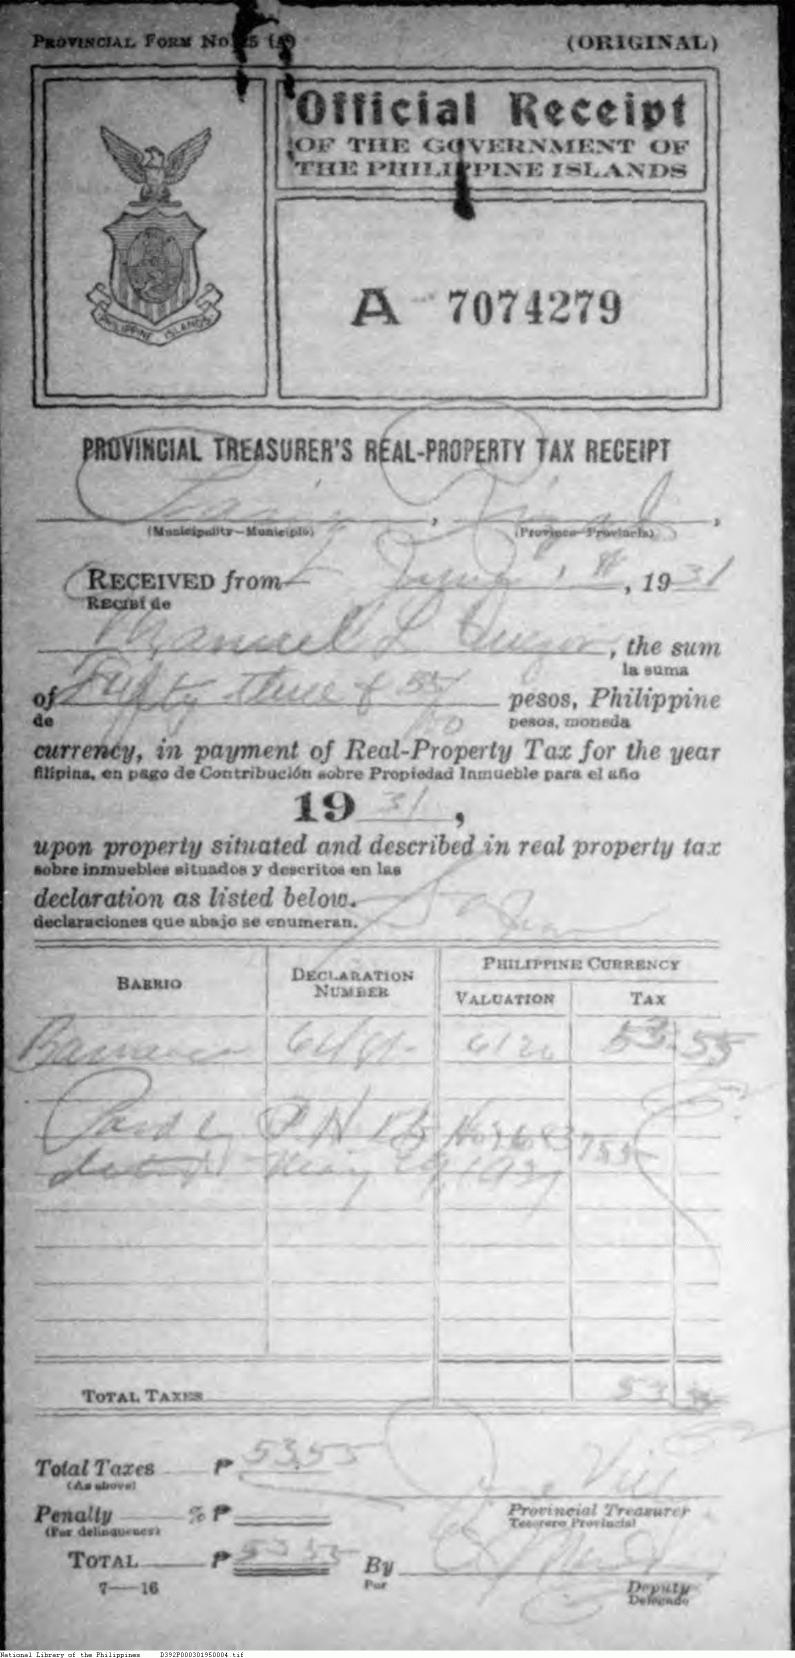 PROVINCIAL FORM No. 25 (A) (ORIGINAL)
Official Receipt
OF THE GOVERNMENT OF
THE PHILIPPINE ISLANDS
PHILIPPINE ISLANDS
A 7074279
PROVINCIAL TREASURER'S REAL-PROPERTY TAX RECEIPT
Pasig, Rizal,
(Municipality—Municipio) (Province—Provincia)
RECEIVED from , 1931
RECIBÍ de
Manuel L Quezon, the sum
la suma
of Fifty three & 55/ pesos, Philippine
de pesos, moneda
currency, in payment of Real-Property Tax for the year
filipina, en pago de Contribución sobre Propiedad Inmueble para el año
1931,
upon property situated and described in real property tax
sobre inmuebles situados y descritos en las
declaration as listed below.
declaraciones que abajo se enumeran.
BARRIO DECLARATION NUMBER PHILIPPINE CURRENCY
VALUATION TAX
6120 53 55
Paid by P N B No.
dated May 29, 1931
TOTAL TAXES 53 55
Total Taxes ₱ 53.55
(As above)
Penalty % ₱ Provincial Treasurer
(For delinquency) Tesorero Provincial
TOTAL ₱ 53 55 By
Por
7—16 Deputy
Delegado
National Library of the Philippines D392P000301950004.tif